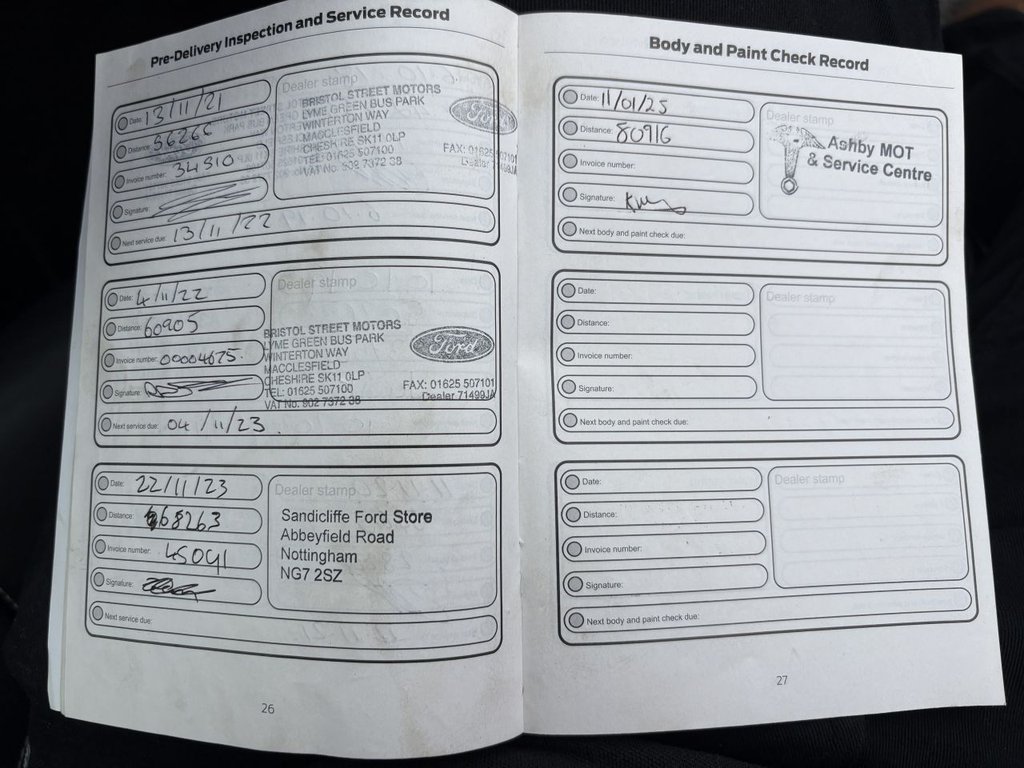 Pre-Delivery Inspection and Service Record
Date: 13/11/21
Distance: 56266
Invoice number: 34510
Signature:
Next service due: 13/11/22
Dealer stamp
BRISTOL STREET MOTORS
LYME GREEN BUS PARK
WINTERTON WAY
MACCLESFIELD
CHESHIRE SK11 0LP
TEL: 01625 507100
VAT No. 902 7372 38
Ford
FAX: 01625 507101
Dealer 71499JA
Date: 4/11/22
Distance: 60905
Invoice number: 00004675.
Signature:
Next service due: 04/11/23.
Dealer stamp
BRISTOL STREET MOTORS
LYME GREEN BUS PARK
WINTERTON WAY
MACCLESFIELD
CHESHIRE SK11 0LP
TEL: 01625 507100
VAT No. 902 7372 38
Ford
FAX: 01625 507101
Dealer 71499JA
Date: 22/11/23
Distance: 68263
Invoice number: 45091
Signature:
Next service due:
Dealer stamp
Sandicliffe Ford Store
Abbeyfield Road
Nottingham
NG7 2SZ
26
Body and Paint Check Record
Date: 11/01/25
Distance: 80916
Invoice number:
Signature:
Next body and paint check due:
Dealer stamp
Ashby MOT
& Service Centre
Date:
Distance:
Invoice number:
Signature:
Next body and paint check due:
Dealer stamp
Date:
Distance:
Invoice number:
Signature:
Next body and paint check due:
Dealer stamp
27